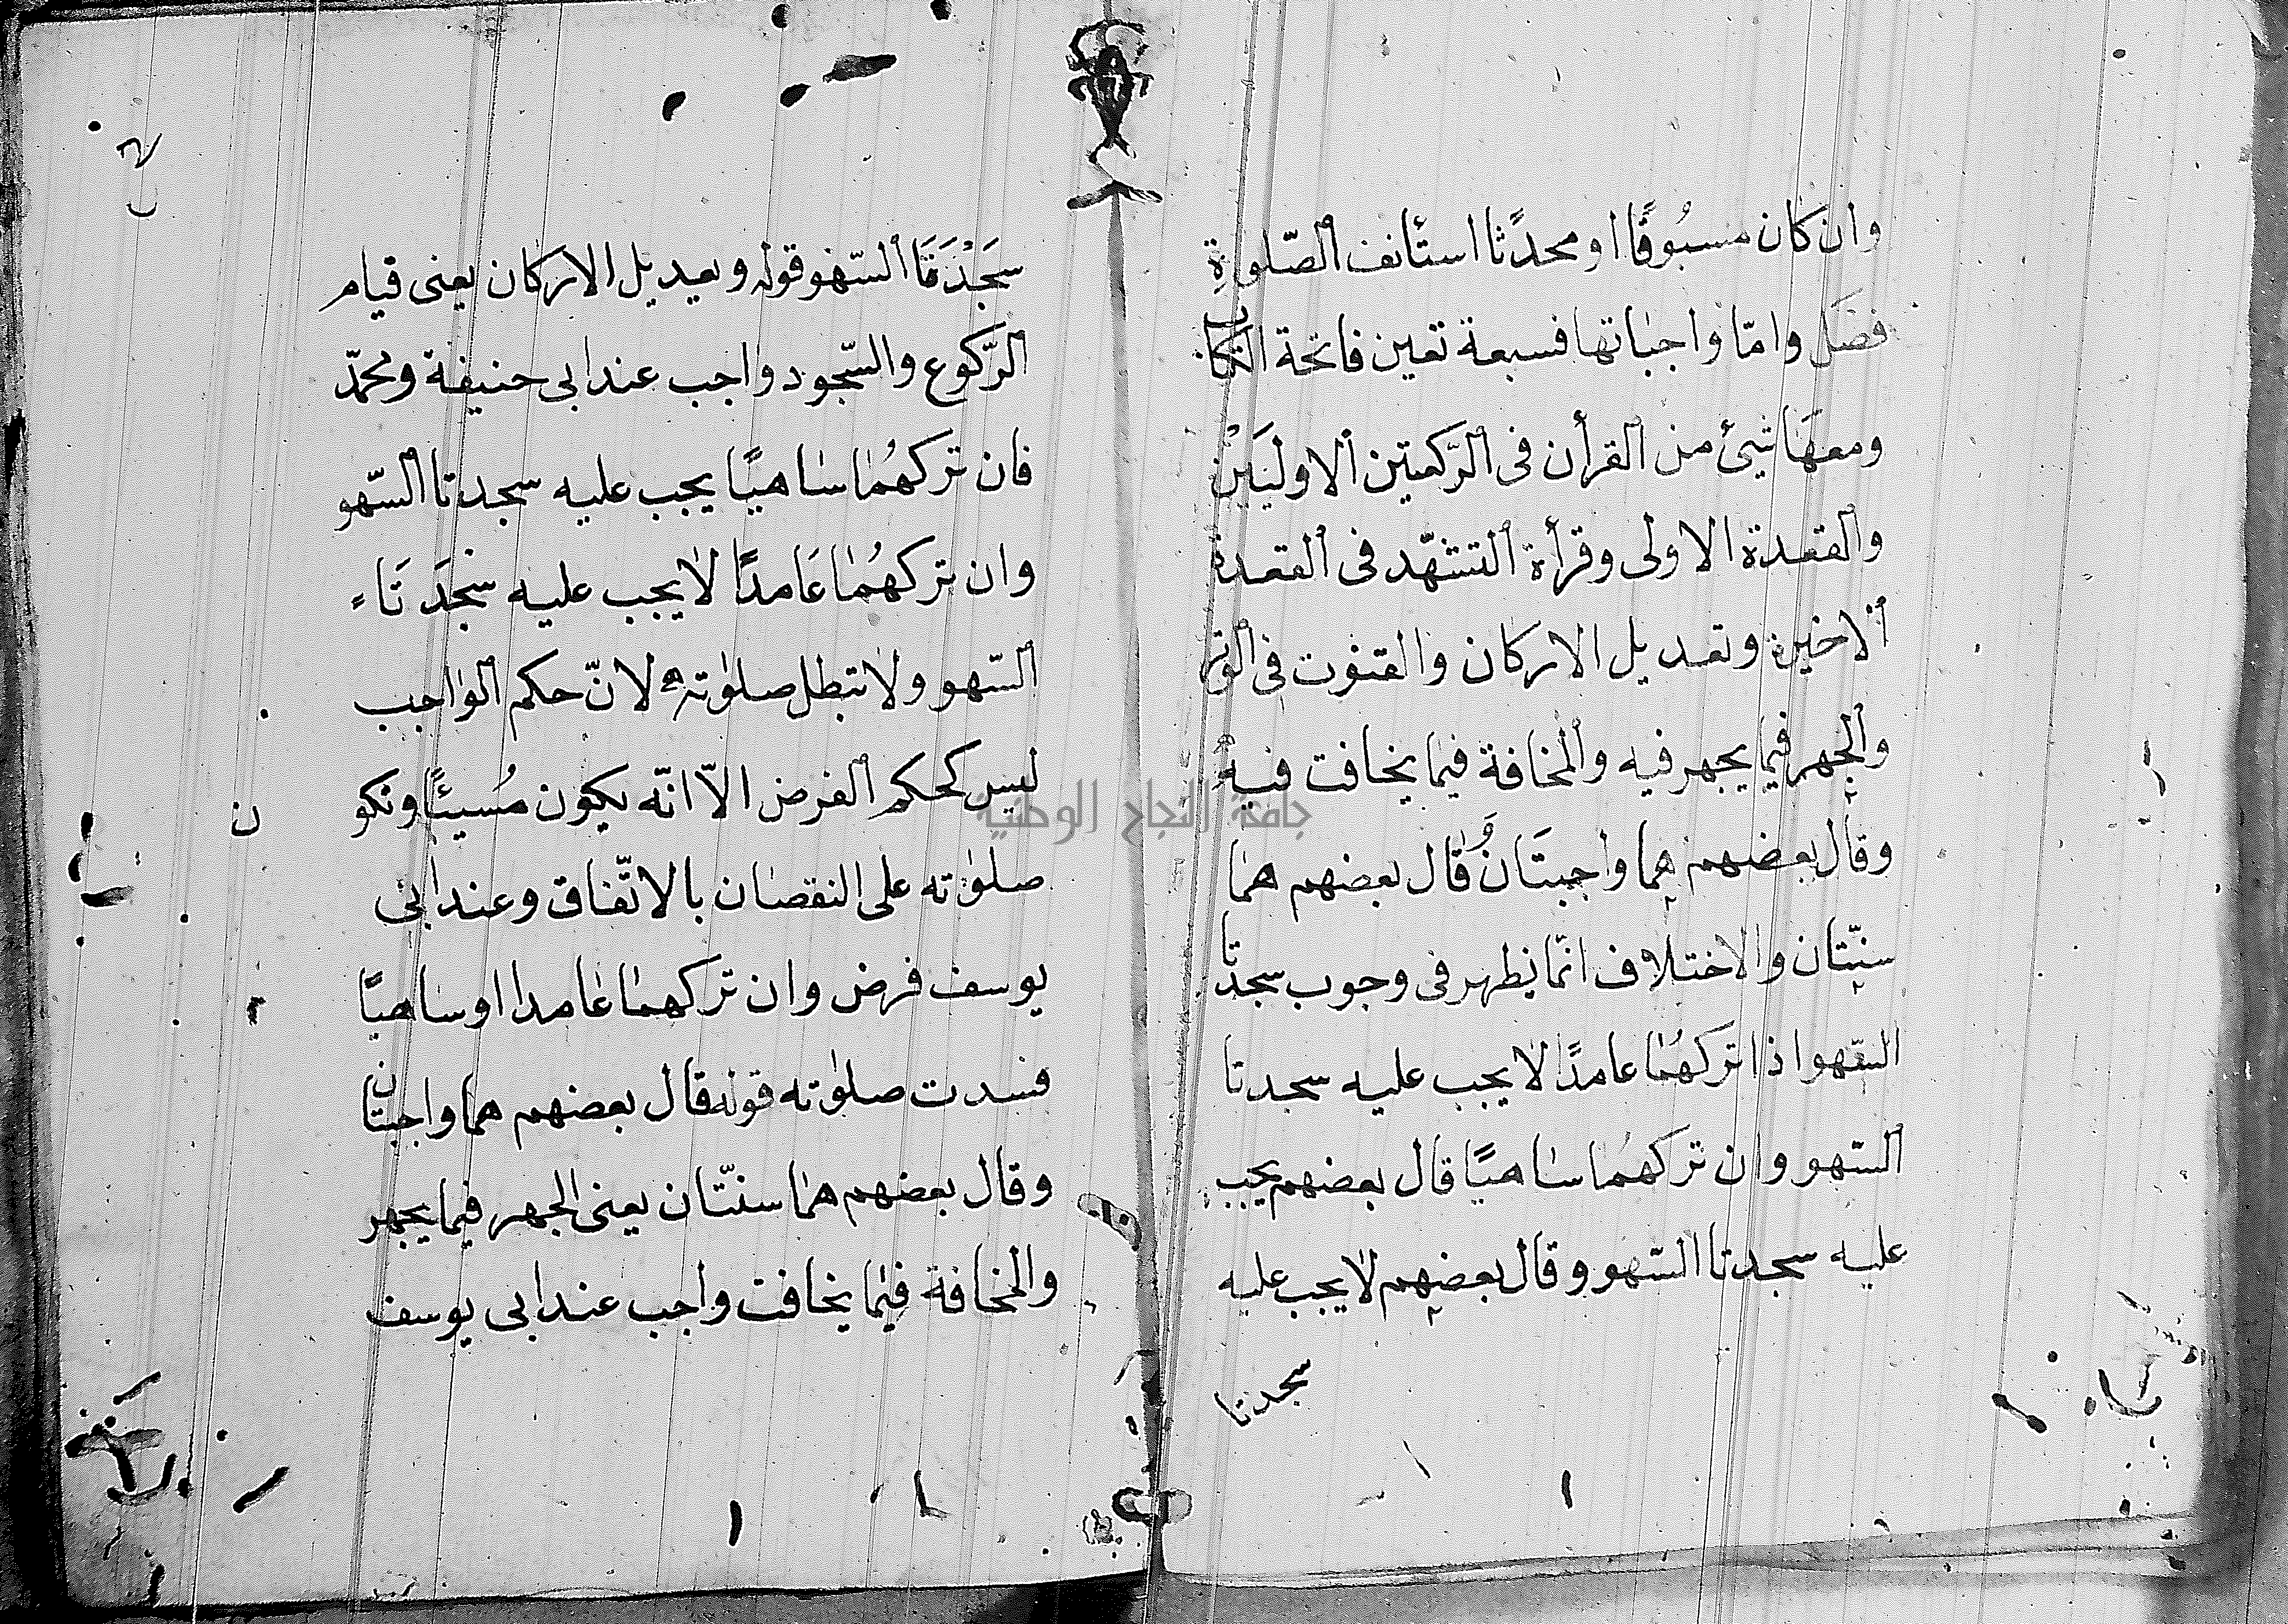 وان كان مسبُوقًا او محدثًا استأنف الصّلوةِ
فصَل وامّا واجباتها فسبعة تعين فاتحة الكتاب
ومعهَا شيئ من القرأن فى الرّكعتين الاوليَيْن
والقعدة الاولى وقرأة التشهّد فى القعدة
الاخيرة وتعديل الاركان والقنوت فى الوتر
والجهر فيما يجهر فيه والمخافة فيما يخافت فيه
وقال بعضهم هما واجبتَان وقال بعضهم هما
سنّتان والاختلاف انّما يظهر فى وجوب سجدتا
السّهو اذا تركهُمَا عامدًا لا يجب عليه سجدتا
السّهو وان تركهُما ساهيًا قال بعضهم يجب
عليه سجدتا السّهو وقال بعضهم لا يجب عليه
سجدتا
سَجْدَتَا السّهو قوله وتعديل الاركان يعنى قيام
الرّكوع والسّجود واجب عند ابى حنيفة ومحمّد
فان تركهُمَا ساهيًا يجب عليه سجدتا السّهو
وان تركهُمَا عَامدًا لا يجب عليه سجدَتَا
السّهو ولا تبطل صلوٰته لانّ حكم الواجب
ليس كحكم الفرض الاّ انّه يكون مُسيئًا وتكون
صلوٰته على النقصان بالاتّفاق وعند ابى
يوسف فرض وان تركهما عامدا او ساهيًا
فسدت صلوٰته قوله قال بعضهم هما واجبتان
وقال بعضهم هما سنّتان يعنى الجهر فيما يجهر
والمخافة فيما يخافت واجب عند ابى يوسف
جامعة النجاح الوطنية